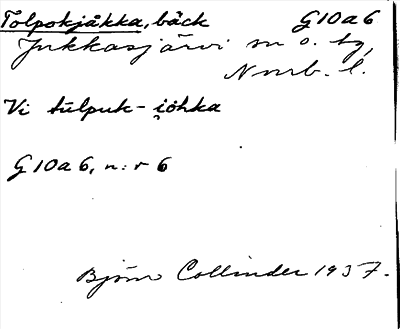 Tolpokjåkka, bäck G10a6
Jukkasjärvi sn o. tg,
Nmrb. l.
Vi tulpuk-i̯ohka
G10a6, n:r 6
Björn Collinder 1937.